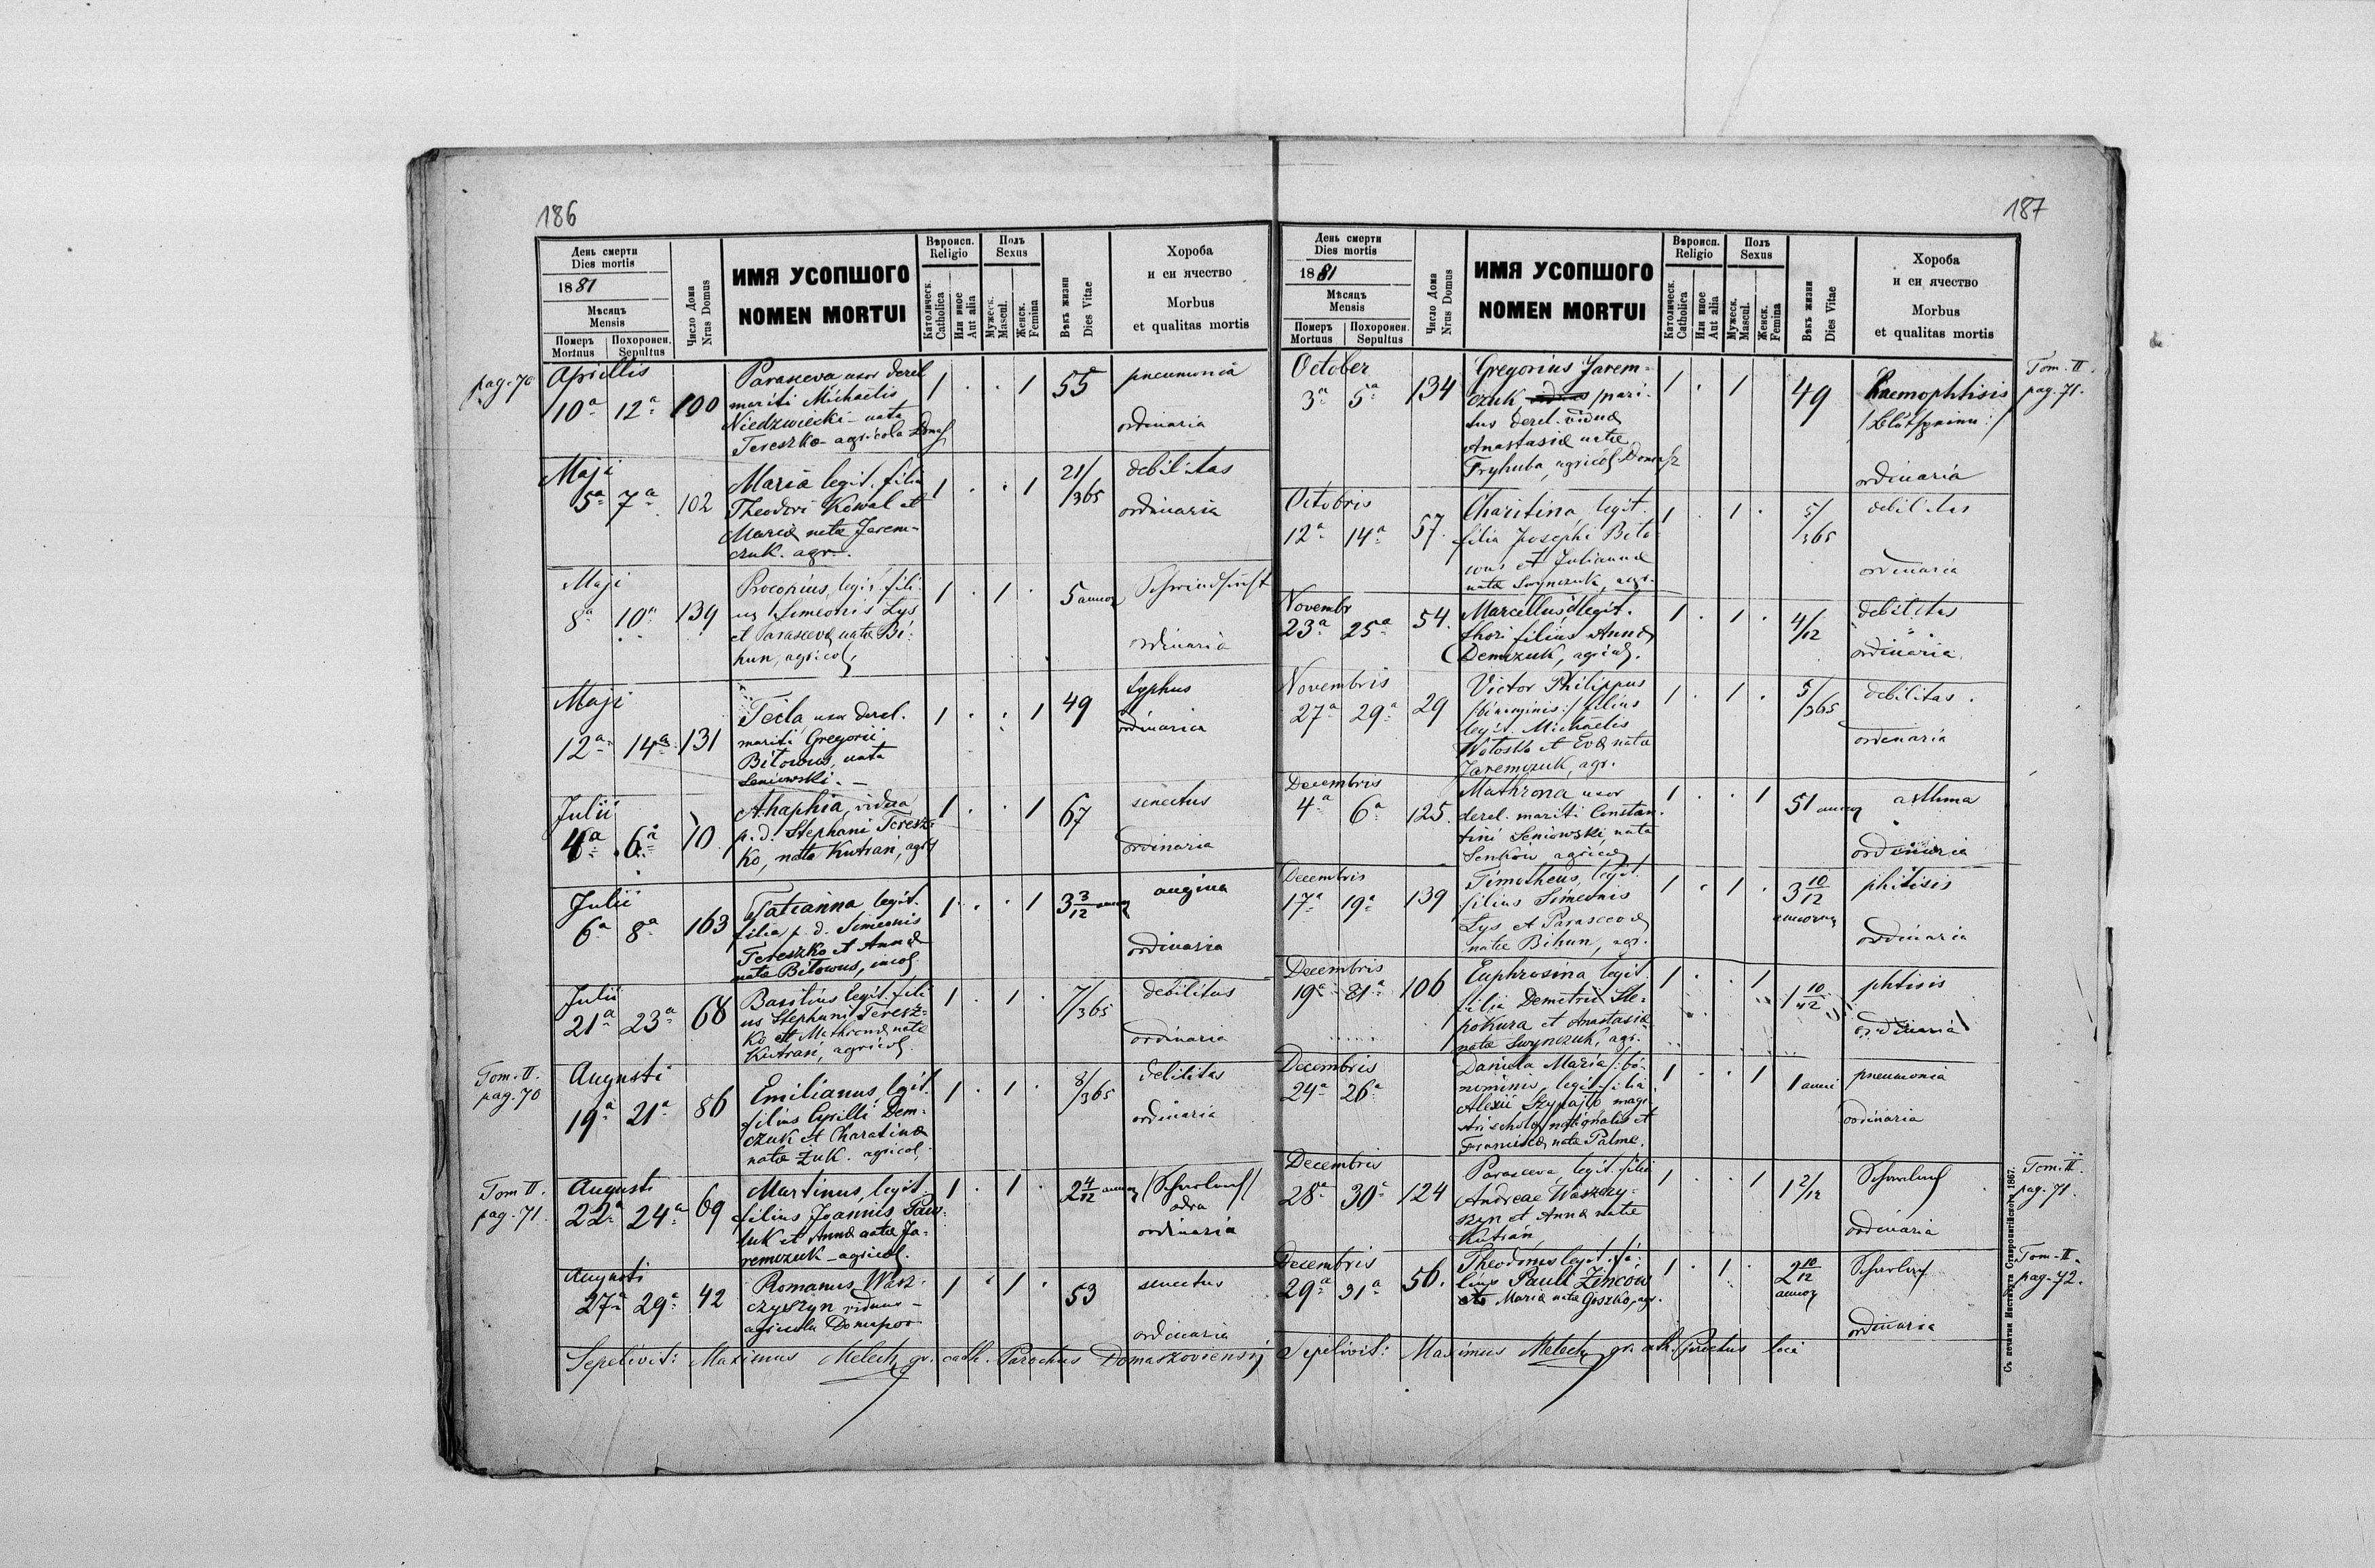 186
День смерти
Dies mortis
1881
Мѣсяць
Mensis
Померъ Похоронен.
Mortuus Sepultus
Число Дома
Nrus Domus
ИМЯ УСОПШОГО
NOMEN MORTUI
Вѣроисп.
Religio
Католическ.
Catholica
Или иное
Aut alia
Полъ
Sexus
Мужеск.
Mascul.
Женск.
Femina
Вѣкъ жизни
Dies Vitae
Хороба
и еи ячество
Morbus
et qualitas mortis
pag. 70
Aprillis
10a 12a 100
Parasceva uxor derel
mariti Michaëlis
Niedzwiecki - nata
Tereszko - agricola
1 . . 1 55
pneumonia
ordinaria
Maji
5a 7a 102
Maria legit. filia
Theodori Kowal et
Mariæ natæ Jarem-
czuk. agr.
1 . . 1 21/365
debilitas
ordinaria
Maji
8a 10a 139
Procopius, legit. fili-
us Simeonis Lys
et Parascevæ natæ Bi-
hun, agricol,
1 . 1 . 5 annor
Schwindsucht
ordinaria
Maji
12a 14a 131
Tecla uxor derel.
mariti Gregorii
Bitowus, nata
Seniowski -
1 . . 1 49
typhus
ordinaria
Julii
4a 6a 70
Ahaphia, vidua
p. d. Stephani Teresz-
ko, nata Kutran, agr
1 . . 1 67
senectus
ordinaria
Julii
6a 8a 163
Tatianna legit.
filia p. d. Simeonis
Tereszko et Annæ
natæ Bitowus, incol
1 . . 1 3 3/12 annor
angina
ordinaria
Julii
21a 23a 68
Basilius legit. fili
us Stephani Teresz-
ko et Mathronæ natæ
Kutran, agricol.
1 . 1 . 7/365
debilitas
ordinaria
Tom. II.
pag. 70
Augusti
19a 21a 86
Emilianus, legit.
filius Cyrilli Dem-
czuk et Charatinæ
natæ Żuk. agricol,
1 . 1 . 8/365
debilitas
ordinaria
Tom II.
pag. 71.
Augusti
22a 24a 69
Martinus, legit
filius Joannis Paw-
luk et Annæ natæ Ja-
remczuk - agricol.
1 . 1 . 2 4/12 annor
odra
ordinaria
Augusti
27a 29a 42
Romanus Wasz-
czyszyn viduus -
agricola
1 . 1 . 53
senectus
ordinaria
Sepelivit: Maximus Melech gr. cath. Parochus Domaszoviensis
187
День смерти
Dies mortis
1881
Мѣсяць
Mensis
Померъ Похоронен.
Mortuus Sepultus
Число Дома
Nrus Domus
ИМЯ УСОПШОГО
NOMEN MORTUI
Вѣроисп.
Religio
Католическ.
Catholica
Или иное
Aut alia
Полъ
Sexus
Мужеск.
Mascul.
Женск.
Femina
Вѣкъ жизни
Dies Vitae
Хороба
и еи ячество
Morbus
et qualitas mortis
October
3a 5a 134
Gregorius Jarem-
czuk mari-
tus derel. viduæ
Anastasiæ natæ
Fryhuba, agricol
1 . 1 49
Haemophthisis
ordinaria
Tom. II.
pag. 71.
Octobris
12a 14a 57.
Charitina, legit.
filia Josephi Bito-
wus et Juliannæ
natæ Swynczuk, agr.
1 . 1 . 5/365
debilitas
ordinaria
Novembr
23a 25a 54.
Marcellus illegit.
thori filius Annæ
Demczuk, agricol.
1 . 1 . 4/12
debilitas
ordinaria
Novembris
27a 29a 29
Victor Philippus
/binominis:/ filius
legit. Michaëlis
Wołoszko et Evæ natæ
Jaremczuk, agr.
1 . 1 . 5/365
debilitas.
ordinaria
Decembris
4a 6a 125.
Mathrona uxor
derel. mariti Constan-
tini Seniowski, nata
Senkow agricol
1 . . 1 51 annor
asthma
ordinaria
Decembris
17a 19a 139
Timotheus, legit.
filius Simeonis
Lys et Parascevæ
natæ Bihun, agr.
1 . 1 . 3 10/12 annorum
phtisis
ordinaria
Decembris
19a 21a 106
Euphrosina legit
filia Demetrii Ste-
pokura et Anastasiæ
natæ Swynczuk, agr.
1 . 1 1 10/12
phtisis
ordinaria
Decembris
24a 26a
Daniela Maria /:bi-
nominis, legit. filia
Alexii Szypajło magi-
stri scholæ nationalis et
Franciscæ natæ Palme.
1 . . 1 1 anni
pneumonia
ordinaria
Decembris
28a 30a 124
Parasceva, legit. filia
Andreae Waszczy-
szyn et Annæ natæ
Kutran,
1 . . 1 1 2/12
Scharlach
ordinaria
Tom. II.
pag. 71.
Decembris
29a 31a 56.
Theodorus legit. fi-
lius Pauli Zińcow
et Mariæ natæ Goszko, agr.
1 . 1 . 2 10/12 annor
Scharlach
ordinaria
Tom. II.
pag. 72.
Sepelivit: Maximus Melech gr. cath. Parochus loci
Съ печатни Института Ставропигійского 1867.